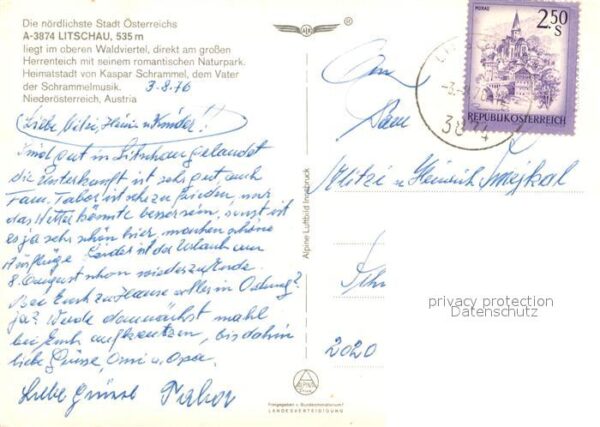 Die nördlichste Stadt Österreichs
A-3874 LITSCHAU, 535 m
liegt im oberen Waldviertel, direkt am großen
Herrenteich mit seinem romantischen Naturpark.
Heimatstadt von Kaspar Schrammel, dem Vater
der Schrammelmusik.
Niederösterreich, Austria
3-8-76
Liebe Mitzi, Heini u Kinder!
Sind gut in Litschau gelandet
die Unterkunft ist sehr gut auch
Fam. Tabor ist sehr zufrieden, nur
das Wetter könnte besser sein, sonst ist
es ja sehr schön hier, machen schöne
Ausflüge. Leider ist der Urlaub am
8. August schon wieder zu Ende.
Bei Euch zu Hause alles in Ordnung?
ja? Werde demnächst mahl
bei Euch aufkreutzen, bis dahin
liebe Grüsse, Omi u Opa.
Liebe Grüsse Tabor
Alpine Luftbild Innsbruck
ALPINE
Freigegeben v. Bundesministerium f.
LANDESVERTEIDIGUNG
MURAU
2.50
S
REPUBLIK ÖSTERREICH
3874
An
Fam
Mitzi u Heinrich Smejkal
2020
privacy protection
Datenschutz